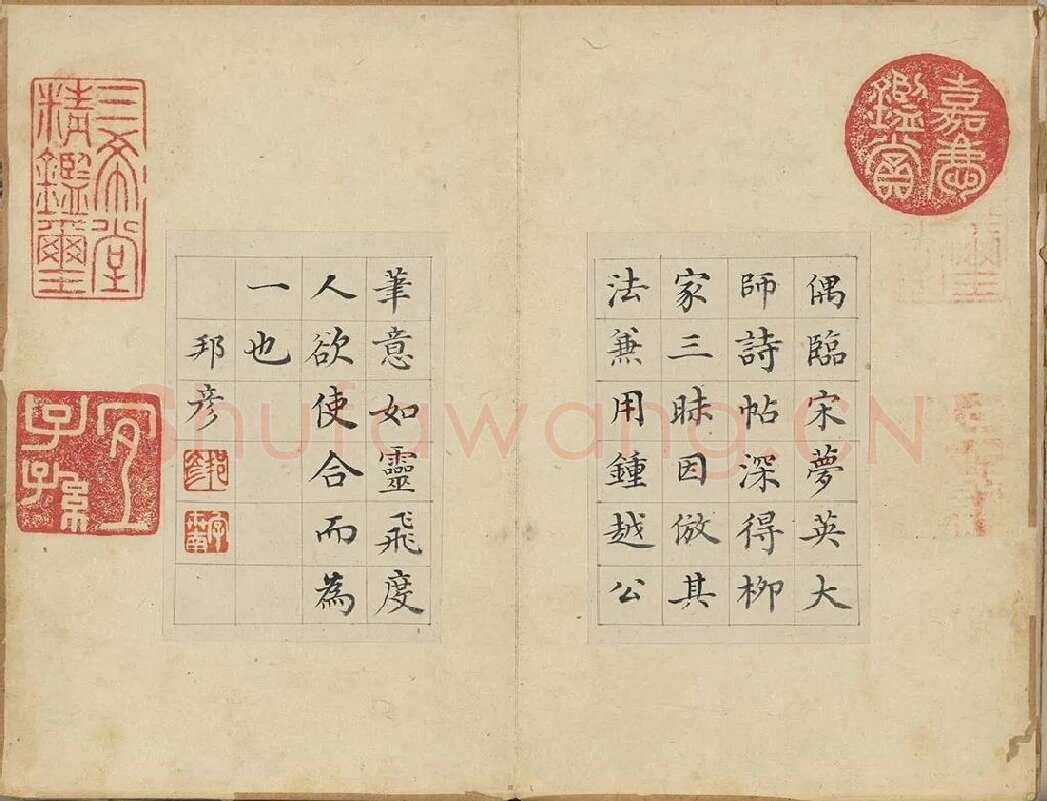 偶臨宋夢英大
師詩帖深得柳
家三昧因倣其
法兼用鍾越公
筆意如靈飛度
人欲使合而為
一也
邦彦
嘉慶鑑賞
三希堂精鑑璽
宜子孫
邦彦
Shufawang.CN